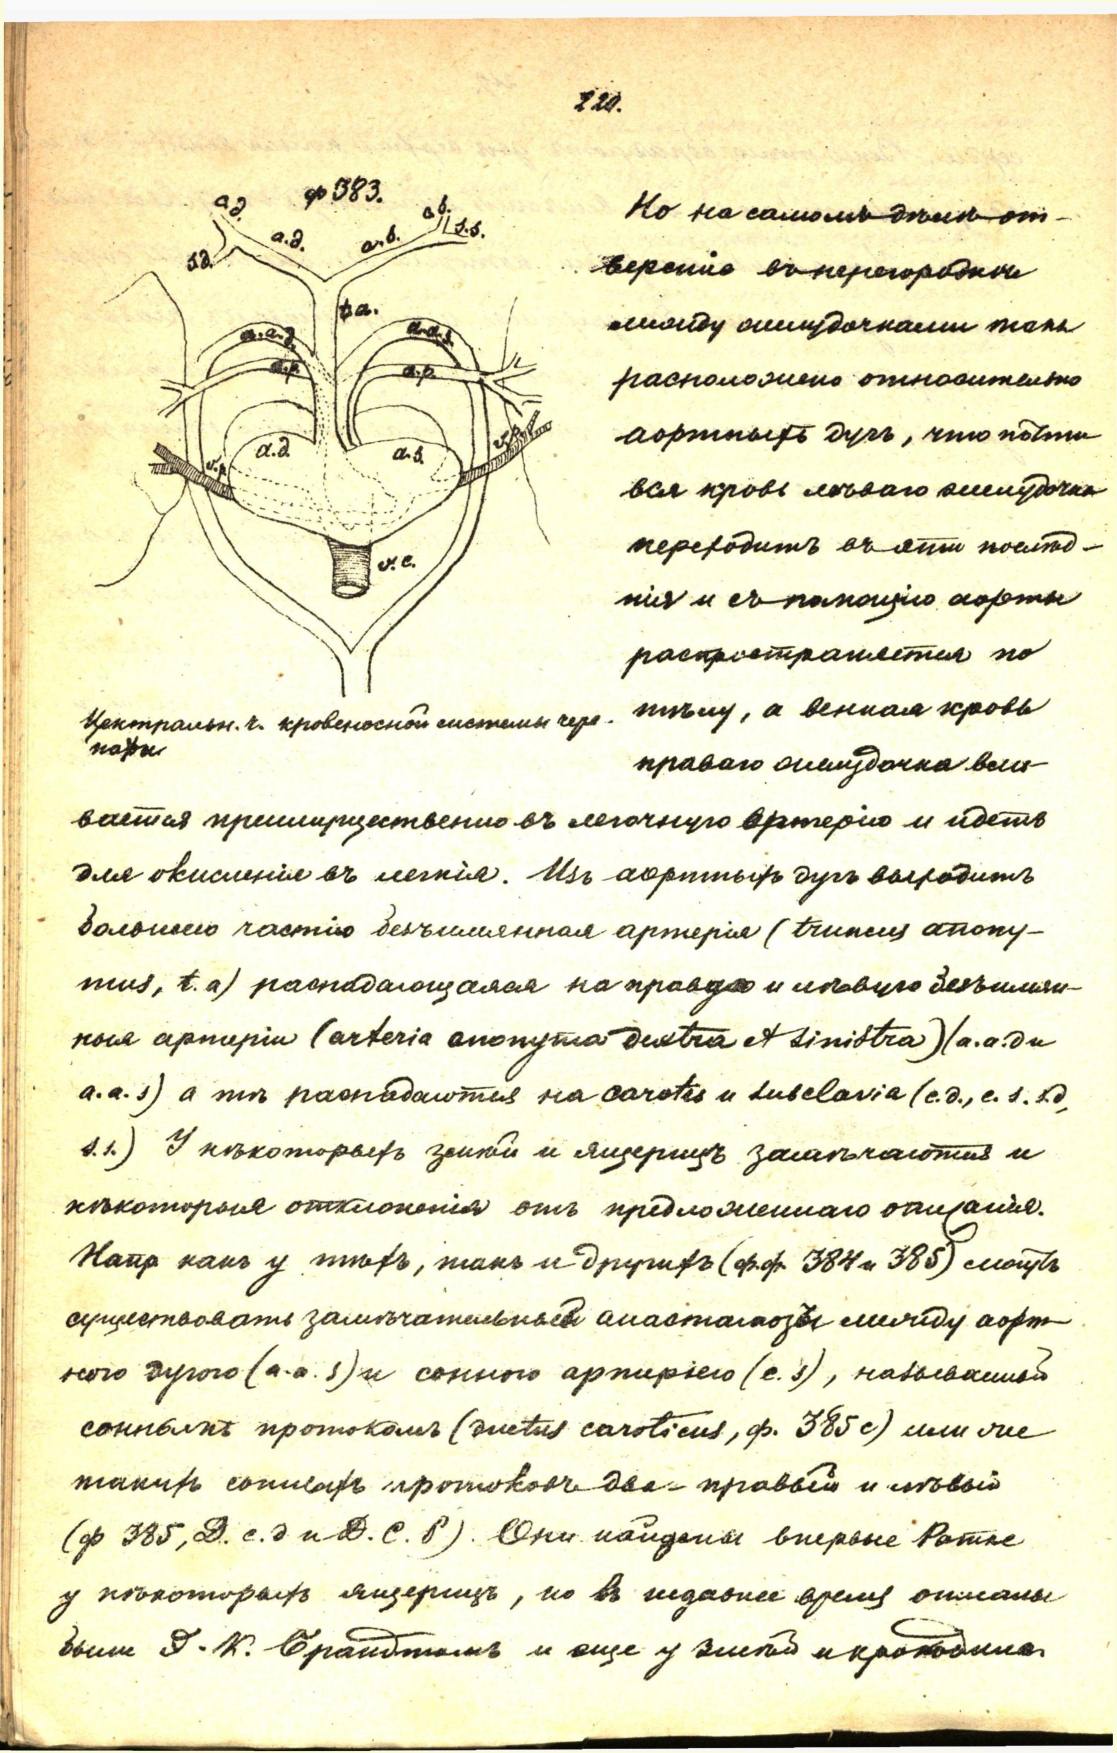 220.
ф 383.
a.d.
a.d.
s.d.
a.s.
a.s.
s.s.
t.a.
a.a.d.
a.a.s.
a.p.
a.p.
a.d.
a.s.
v.p.
v.p.
v.c.
Центральн. ч. кровеносной системы чере-
пахи
Но на самомъ дѣлѣ от-
верстіе въ перегородкѣ
между желудочками такъ
расположено относительно
аортныхъ дугъ, что почти
вся кровь лѣваго желудочка
переходитъ въ эти послѣд-
нія и съ помощію аорты
распространяется по
тѣлу, а венная кровь
праваго желудочка вли-
вается преимущественно въ легочную артерію и идетъ
для окисленія въ легкія. Изъ аортныхъ дугъ выходитъ
большею частію безъимянная артерія (truncus anony-
mus, t. a) распадающаяся на правую и лѣвую безъимян-
ныя артеріи (arteria anonyma dextra et sinistra) (a.a.d и
a.a.s) а тѣ распадаются на carotis и subclavia (c.d., c.s. s.d,
s.s.) У нѣкоторыхъ змѣй и ящерицъ замѣчаются и
нѣкоторыя отклоненія отъ предложеннаго описанія.
Напр какъ у тѣхъ, такъ и другихъ (ф.ф. 384 и 385) могутъ
существовать замѣчательные анастамозы между аорт-
ною дугою (a.a.s) и сонною артеріею (c.s), называемый
соннымъ протокомъ (ductus caroticus, ф. 385 c) или же
такихъ сонныхъ протоковъ два - правый и лѣвый
(ф 385, D. c. d и D. C. s). Они найдены впервые Ратке
у нѣкоторыхъ ящерицъ, но въ недавнее время описаны
были Э. К. Брандтомъ и еще у змѣй и крокодила.